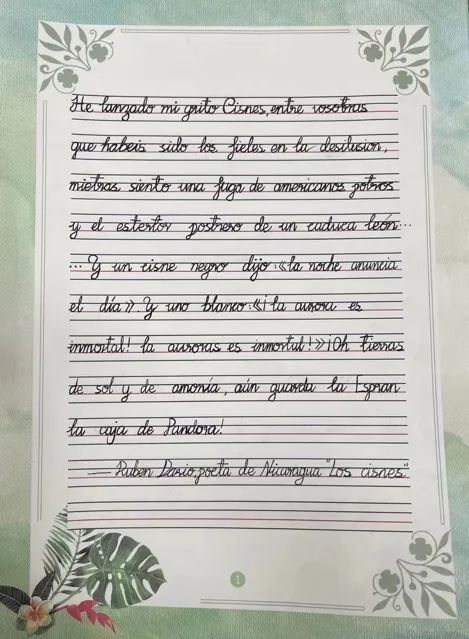 He lanzado mi grito Cisnes, entre vosotras
que habeis sido los fieles en la desilusion,
mietras siento una fuga de americanos potros
y el estertor postrero de un caduca león...
... Y un cisne negro dijo: «la noche anuncia
el día». Y uno blanco: «¡ la aurora es
inmortal! la auroras es inmortal!» ¡Oh tierras
de sol y de amonía, aún guarda la Espran
la caja de Pandora!
— Ruben Dario, poeta de Nicaragua "Los cisnes"
1